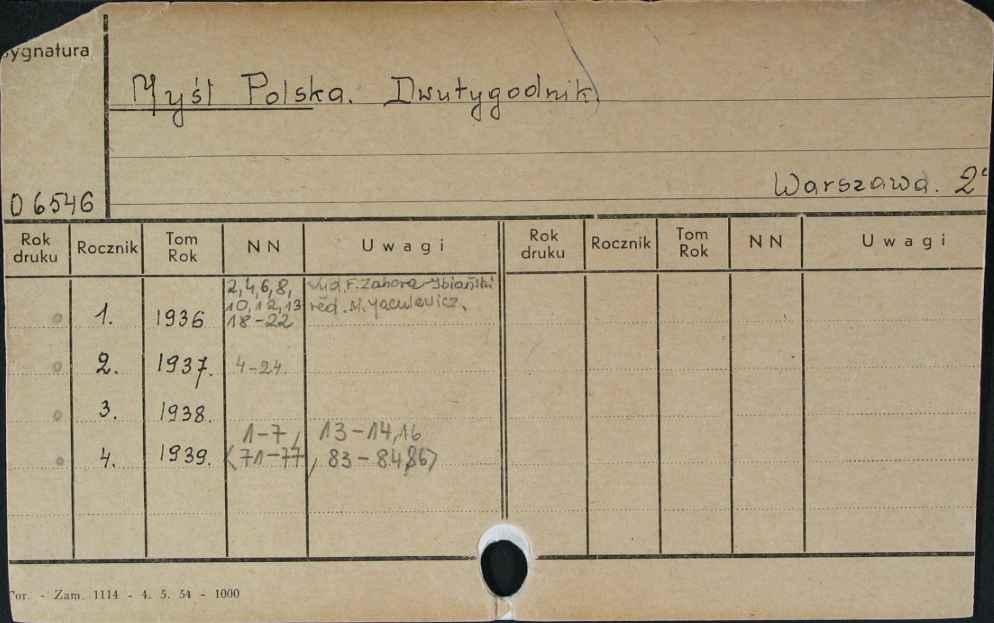 Sygnatura
Myśl Polska. Dwutygodnik
Warszawa. 2°
O 6546
Rok druku Rocznik Tom Rok NN Uwagi Rok druku Rocznik Tom Rok NN Uwagi
2,4,6,8, wyd. F. Zahora-Ibiański
10,12,13 red. M.
1. 1936 18-22
2. 1937. 4-24.
3. 1938.
1-7, 13-14,16
4. 1939. (71-77, 83-84,86)
or. - Zam. 1114 - 4. 5. 54 - 1000